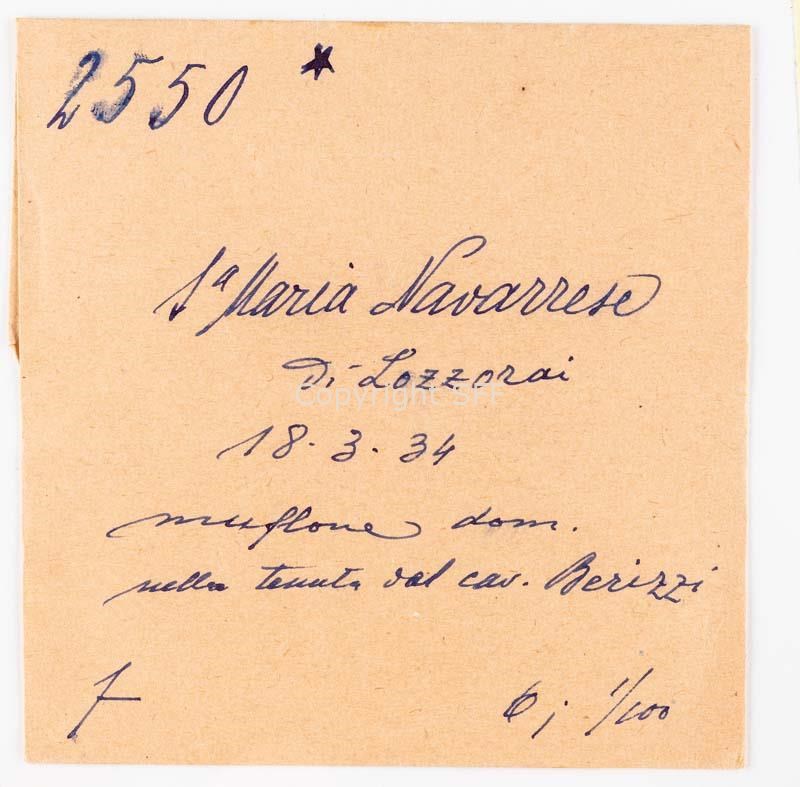 2550 *
Sª Maria Navarrese
di Lozzorai
18.3.34
muflone dom.
nella tenuta del cav. Berizzi
f 6; 1/100
Copyright SFF